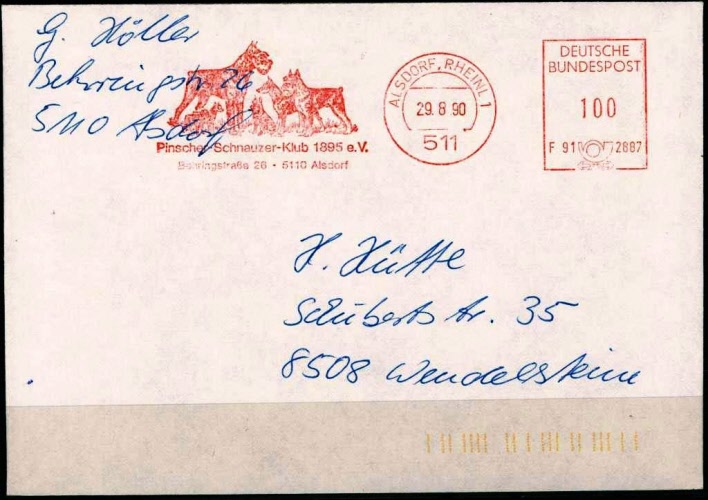 G. Höller
Behringstr 26
5110 Alsdorf
Pinscher-Schnauzer-Klub 1895 e.V.
Behringstraße 26 - 5110 Alsdorf
ALSDORF, RHEINL 1
29.8.90
511
DEUTSCHE
BUNDESPOST
100
F 91 2887
H. Hütte
Schubertstr. 35
8508 Wendelsteine